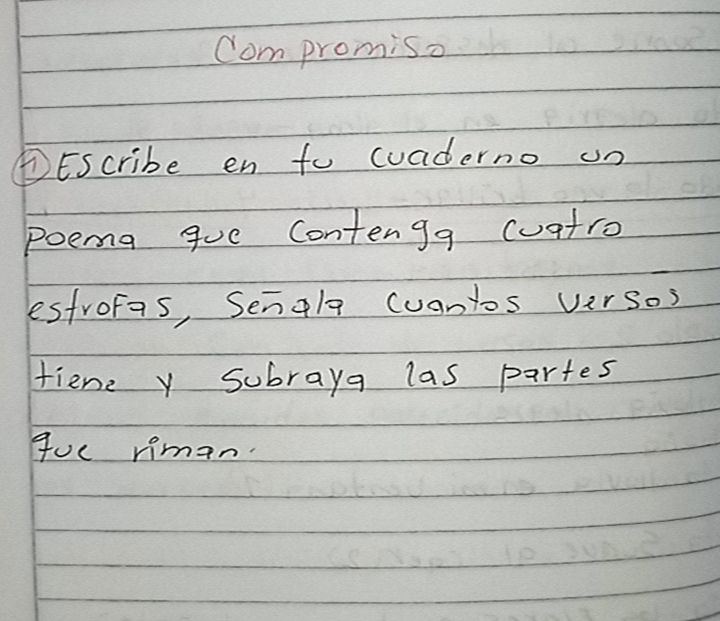 Compromiso
① Escribe en tu cuaderno un
poema que contenga cuatro
estrofas, Señala cuantos versos
tiene y subraya las partes
que riman.